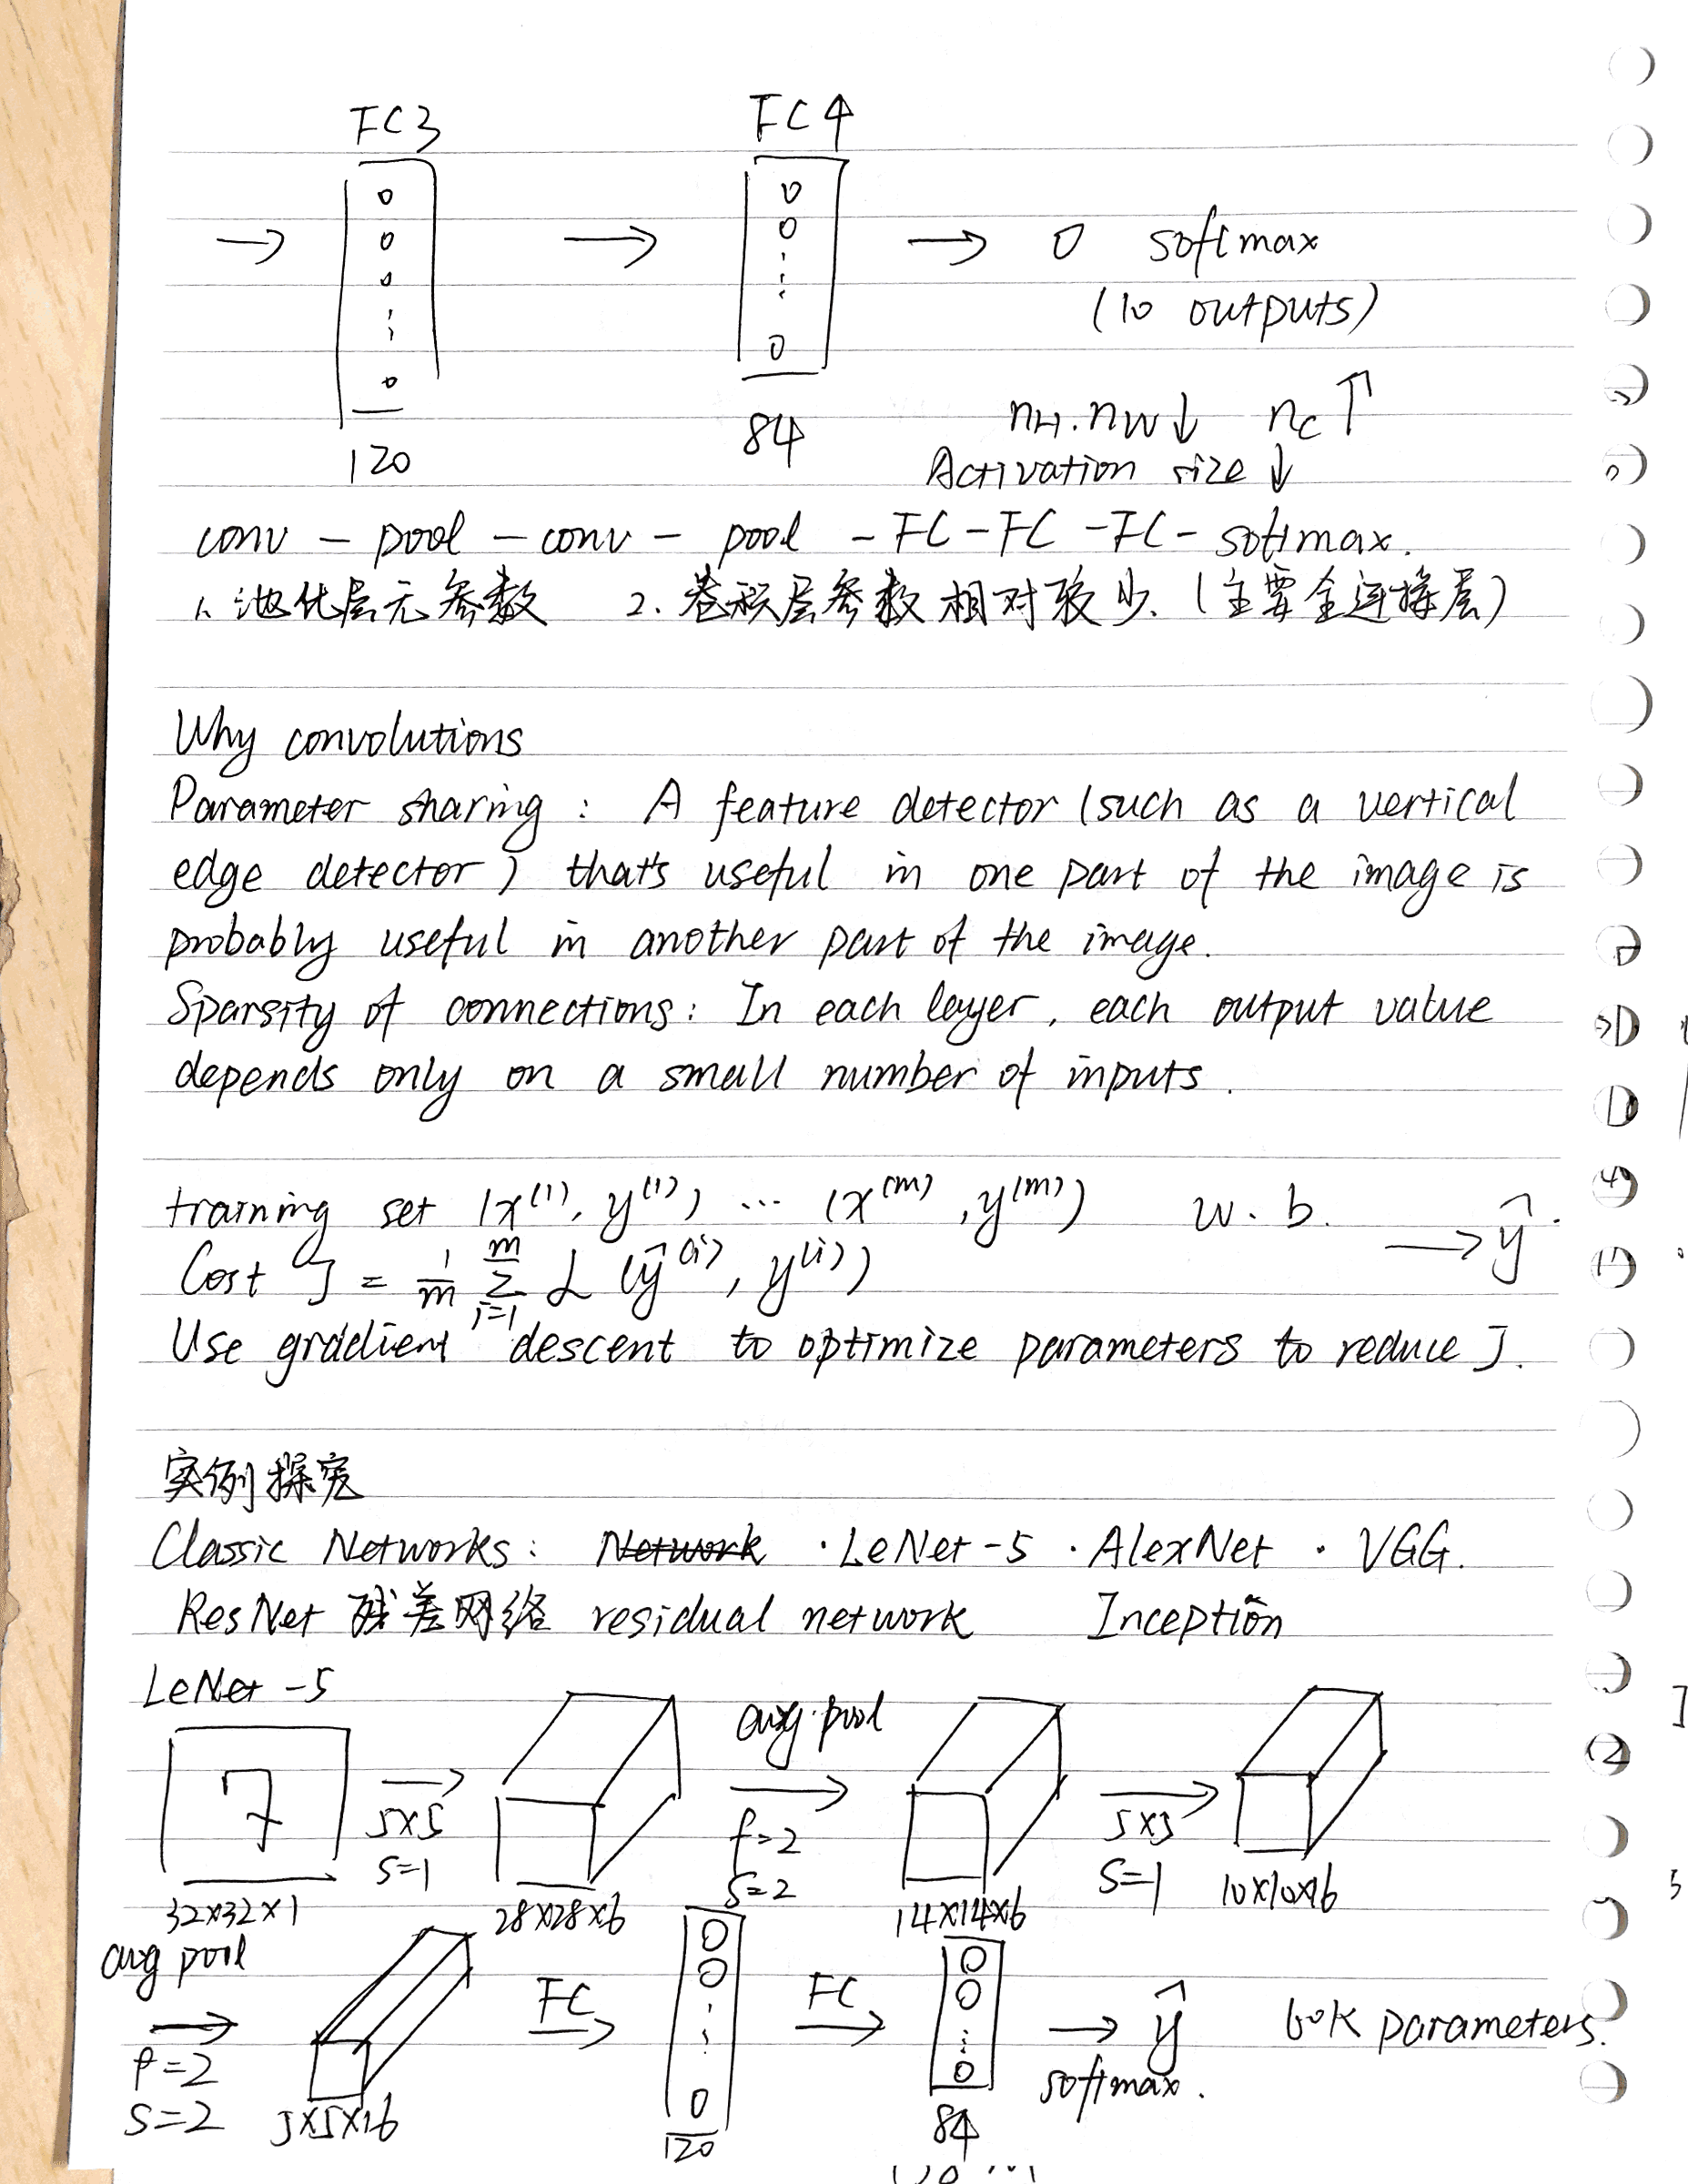 FC3 FC4
→ → → 0 softmax
(10 outputs)
120 84 nH. nW↓ nC↑
Activation size ↓
conv - pool - conv - pool - FC - FC - FC - softmax.
1. 池化层无参数 2. 卷积层参数相对较少. (主要全连接层)
Why convolutions
Parameter sharing : A feature detector (such as a vertical
edge detector) that's useful in one part of the image is
probably useful in another part of the image.
Sparsity of connections: In each layer, each output value
depends only on a small number of inputs.
training set (x⁽¹⁾, y⁽¹⁾) ... (x⁽ᵐ⁾, y⁽ᵐ⁾) w. b. → ŷ.
Cost J = 1/m Σ_{i=1}^{m} L (ŷ⁽ⁱ⁾, y⁽ⁱ⁾)
Use gradient descent to optimize parameters to reduce J.
实例探究
Classic Networks: Network · LeNet-5 · AlexNet · VGG.
ResNet 残差网络 residual network Inception
LeNet-5
7 → 5×5 s=1 avg pool → f=2 s=2 → 5×5 s=1
32×32×1 28×28×6 14×14×6 10×10×16
avg pool → f=2 s=2 FC → FC → → ŷ softmax. 60K parameters.
5×5×16 120 84